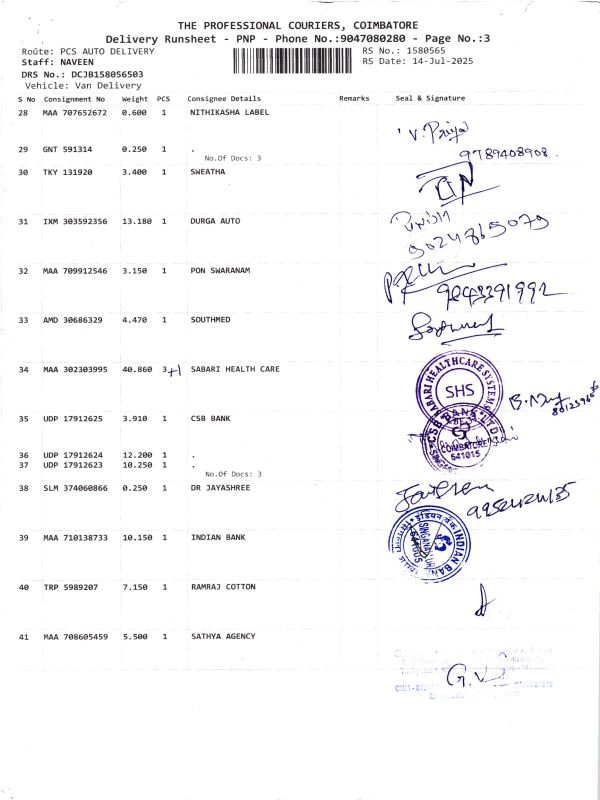 THE PROFESSIONAL COURIERS, COIMBATORE
Delivery Runsheet - PNP - Phone No.:9047080280 - Page No.:3
Roûte: PCS AUTO DELIVERY
RS No.: 1580565
Staff: NAVEEN
RS Date: 14-Jul-2025
DRS No.: DCJB158056503
Vehicle: Van Delivery
S No Consignment No Weight PCS Consignee Details Remarks Seal & Signature
28 MAA 707652672 0.600 1 NITHIKASHA LABEL
V. Priya
29 GNT 591314 0.250 1 .
9789408908
No.Of Docs: 3
30 TKY 131920 3.400 1 SWEATHA
31 IXM 303592356 13.180 1 DURGA AUTO
9024865079
32 MAA 709912546 3.150 1 PON SWARANAM
9843391992
33 AMD 30686329 4.470 1 SOUTHMED
34 MAA 302303995 40.860 3+1 SABARI HEALTH CARE
SABARI HEALTHCARE SYSTEM
SHS
35 UDP 17912625 3.910 1 CSB BANK
CSB BANK LTD
COIMBATORE
641015
36 UDP 17912624 12.200 1 .
37 UDP 17912623 10.250 1 .
No.Of Docs: 3
38 SLM 374060866 0.250 1 DR JAYASHREE
39 MAA 710138733 10.150 1 INDIAN BANK
INDIAN BANK
SINGANALLUR
641005
40 TRP 5989207 7.150 1 RAMRAJ COTTON
41 MAA 708605459 5.500 1 SATHYA AGENCY
G.V